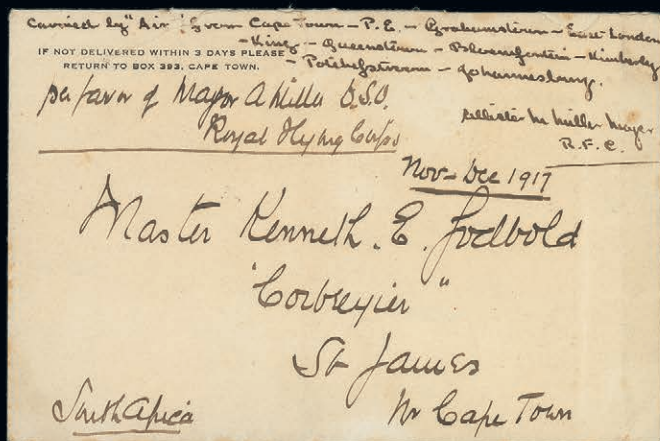 Carried by "Air" from Cape Town - P.E. - Grahamstown - East London
- King - Queenstown - Bloemfontein - Kimberley
IF NOT DELIVERED WITHIN 3 DAYS PLEASE
RETURN TO BOX 393, CAPE TOWN.
- Potchefstroom - Johannesburg.
per favor of Major A Miller D.S.O.
Royal Flying Corps
Allister M Miller Major
R.F.C.
Nov - Dec 1917
Master Kenneth. E. Godbold
"Corbeyrier"
St James
Nr Cape Town
South Africa